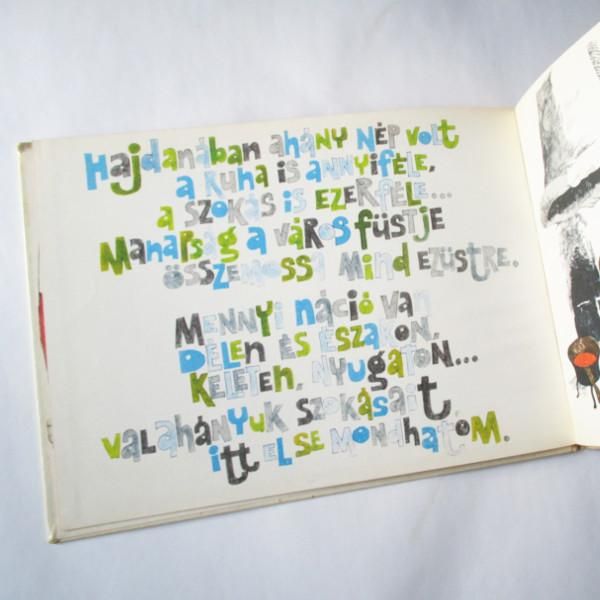 Hajdanában ahány nép volt
a ruha is annyiféle,
a szokás is ezerféle...
Manapság a város füstje
összemossa mind ezüstre.
Mennyi náció van
Délen és Északon,
Keleten, Nyugaton...
valahányuk szokásait
itt el se mondhatom.